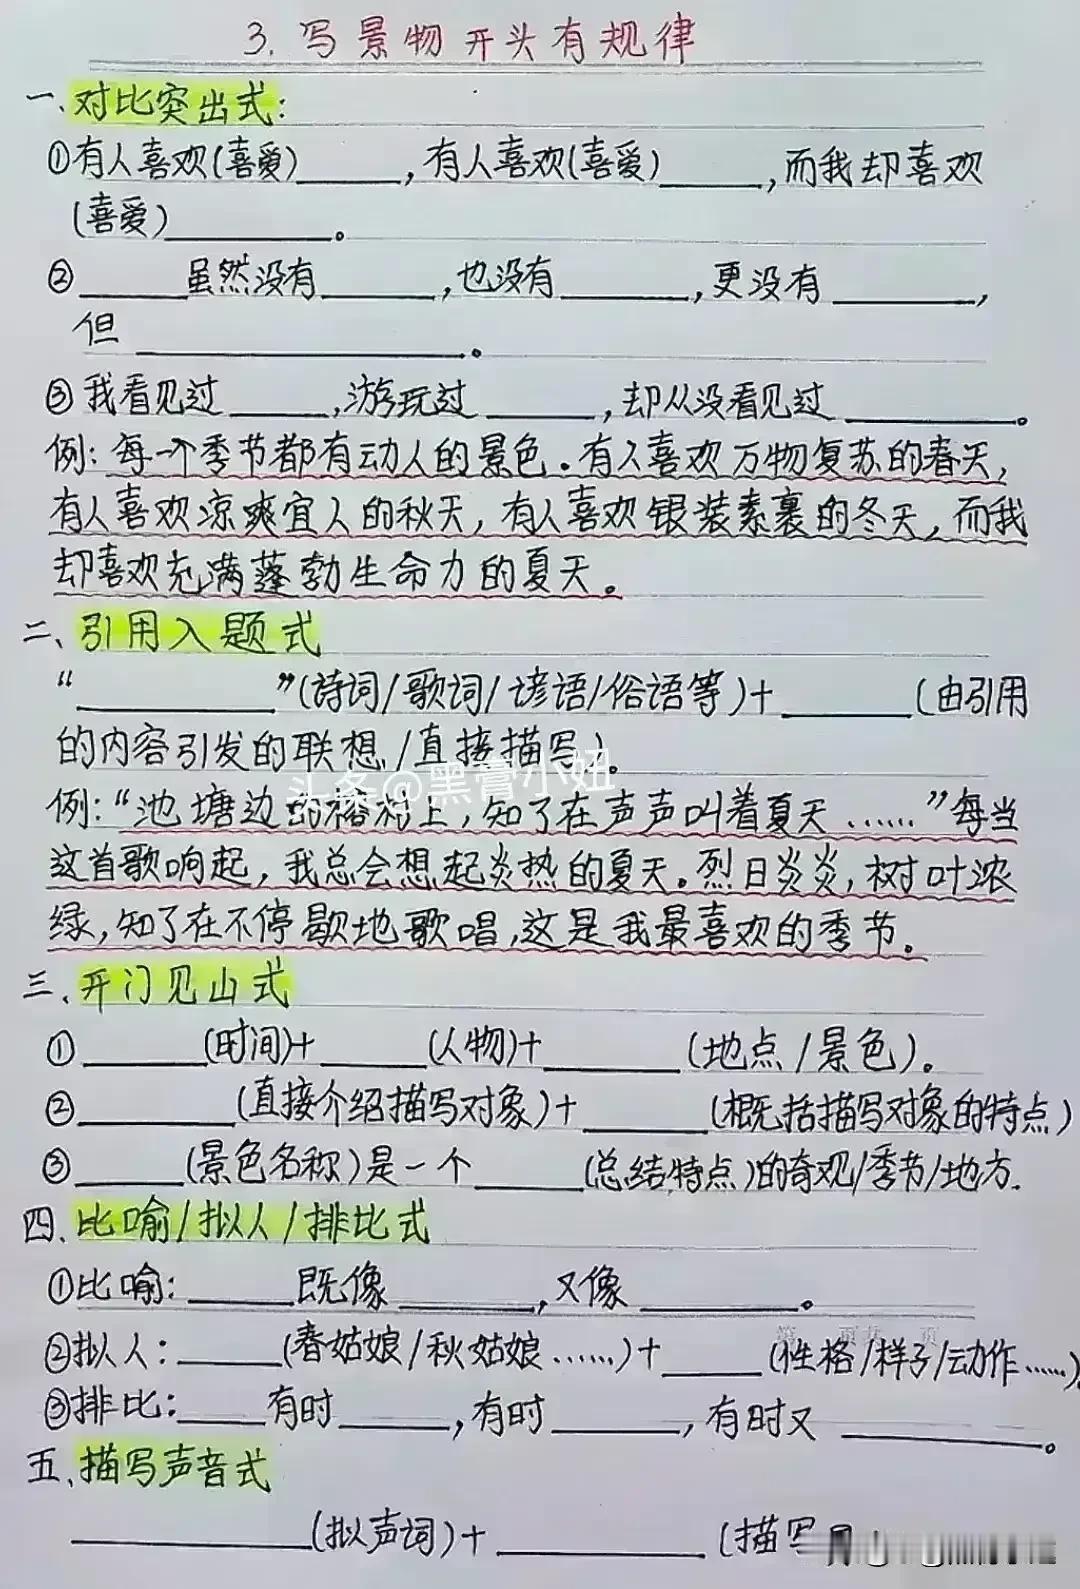 3. 写景物开头有规律
一、对比突出式:
①有人喜欢(喜爱)______,有人喜欢(喜爱)______,而我却喜欢
(喜爱)__________。
②______虽然没有______,也没有______,更没有______,
但__________________。
③我看见过______,游玩过______,却从没看见过__________。
例:每一个季节都有动人的景色。有人喜欢万物复苏的春天,
有人喜欢凉爽宜人的秋天,有人喜欢银装素裹的冬天,而我
却喜欢充满蓬勃生命力的夏天。
二、引用入题式
“__________”(诗词/歌词/谚语/俗语等)+______(由引用
的内容引发的联想/直接描写)。
头条@黑膏小妞
例:“池塘边的榕树上,知了在声声叫着夏天……”每当
这首歌响起,我总会想起炎热的夏天。烈日炎炎,树叶浓
绿,知了在不停歇地歌唱,这是我最喜欢的季节。
三、开门见山式
①______(时间)+______(人物)+______(地点/景色)。
②______(直接介绍描写对象)+______(概括描写对象的特点)
③______(景色名称)是一个______(总结特点)的奇观/季节/地方.
四、比喻/拟人/排比式
①比喻:______既像______,又像______。
第 页 共 页
②拟人:______(春姑娘/秋姑娘……)+______(性格/样子/动作……)
③排比:____有时______,有时______,有时又__________。
五、描写声音式
____________(拟声词)+__________(描写